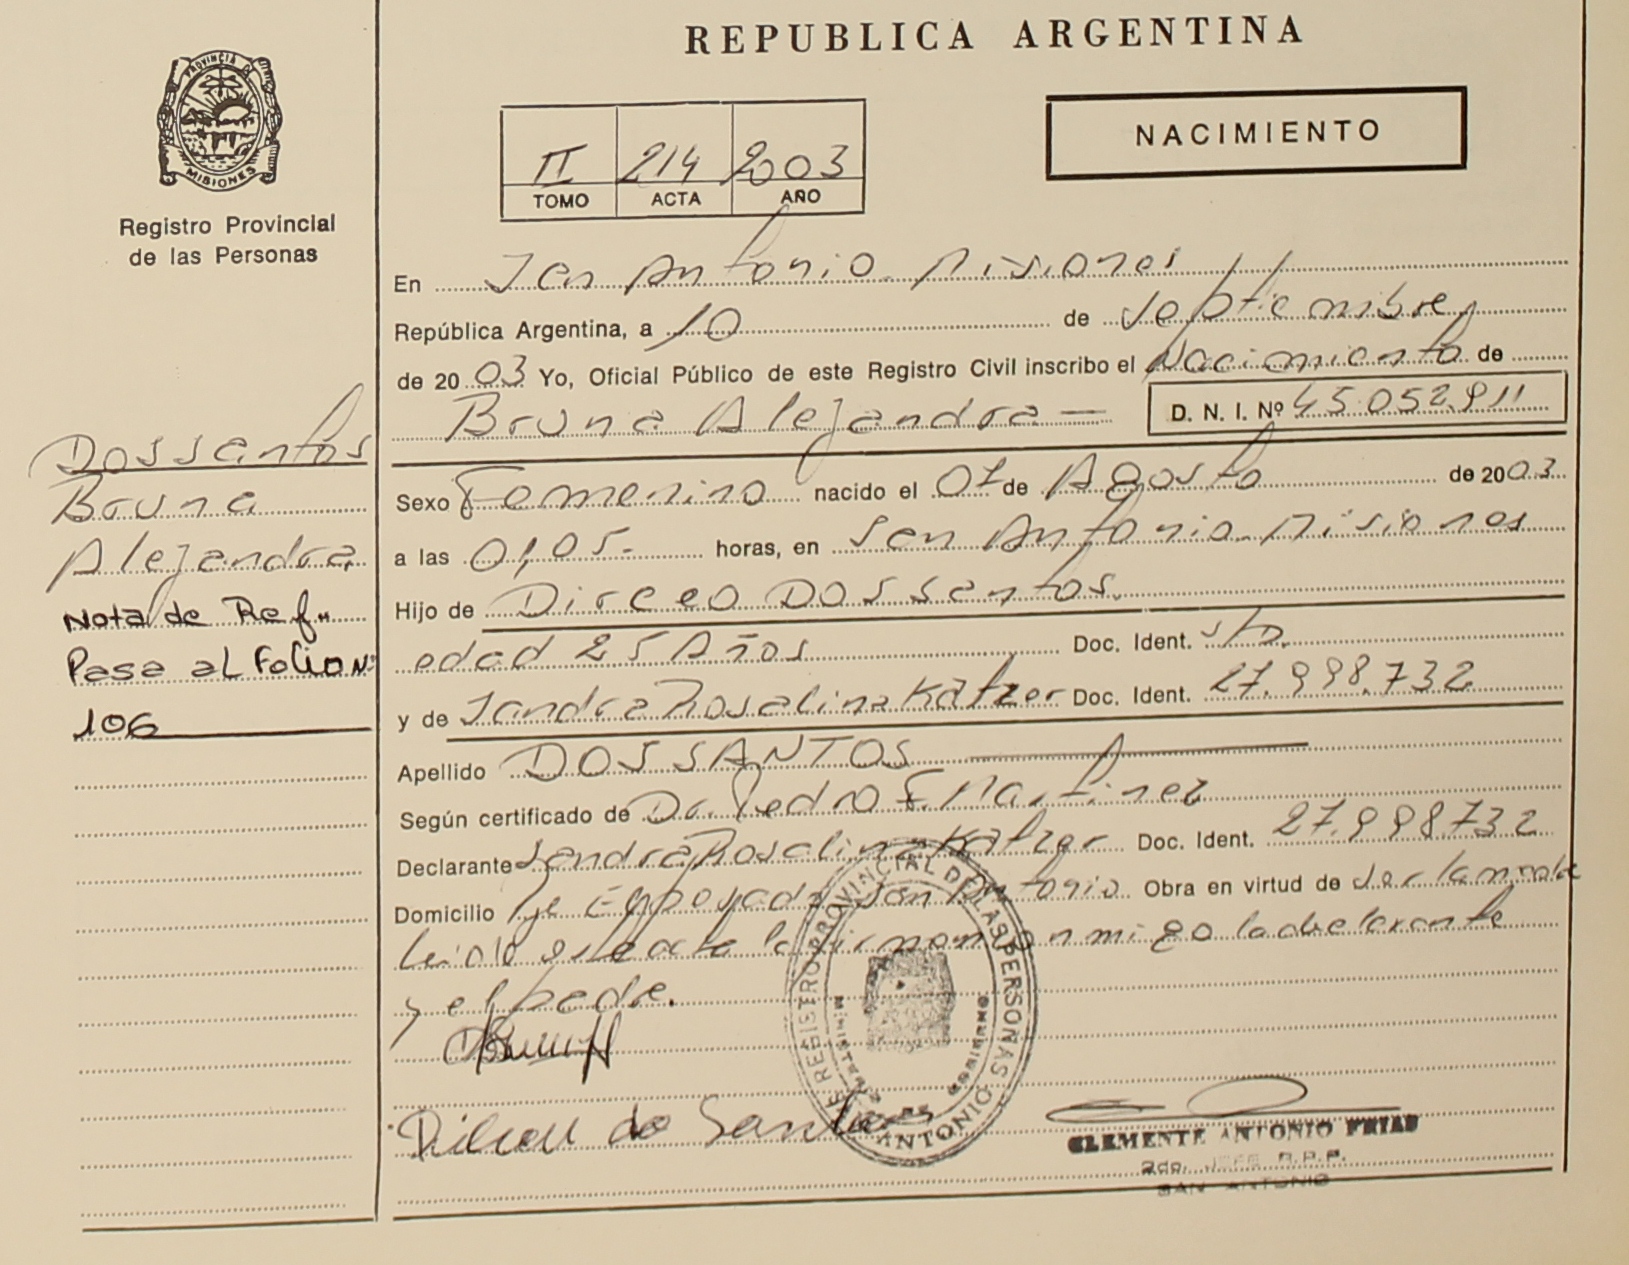 REPUBLICA ARGENTINA
PROVINCIA DE
MISIONES
Registro Provincial
de las Personas
II 214 2003
TOMO ACTA AÑO
NACIMIENTO
En San Antonio. Misiones
República Argentina, a 10 de Septiembre
de 2003 Yo, Oficial Público de este Registro Civil inscribo el Nacimiento de
Bruna Alejandra — D. N. I. Nº 45.052.911
Dossantos
Bruna
Alejandra
Nota de Ref.
Pase al Folio Nº
106
Sexo Femenino nacido el 01 de Agosto de 2003
a las 01,05.- horas, en San Antonio. Misiones
Hijo de Dirceo DOSSantos.
edad 25 Años Doc. Ident. S/D.
y de Sandra Rosalina Katzer Doc. Ident. 27.998.732
Apellido DOSSANTOS
Según certificado de Dr. Pedro F. Martinez
Declarante Sandra Rosalina Katzer Doc. Ident. 27.998.732
Domicilio San Antonio Obra en virtud de ser la madre
leida el acta la firman conmigo la declarante
y el padre.
do Santos
REGISTRO PROVINCIAL DE LAS PERSONAS
MINISTERIO GOBIERNO
ANTONIO
CLEMENTE ANTONIO FRIAS
2do. JEFE R.P.P.
SAN ANTONIO